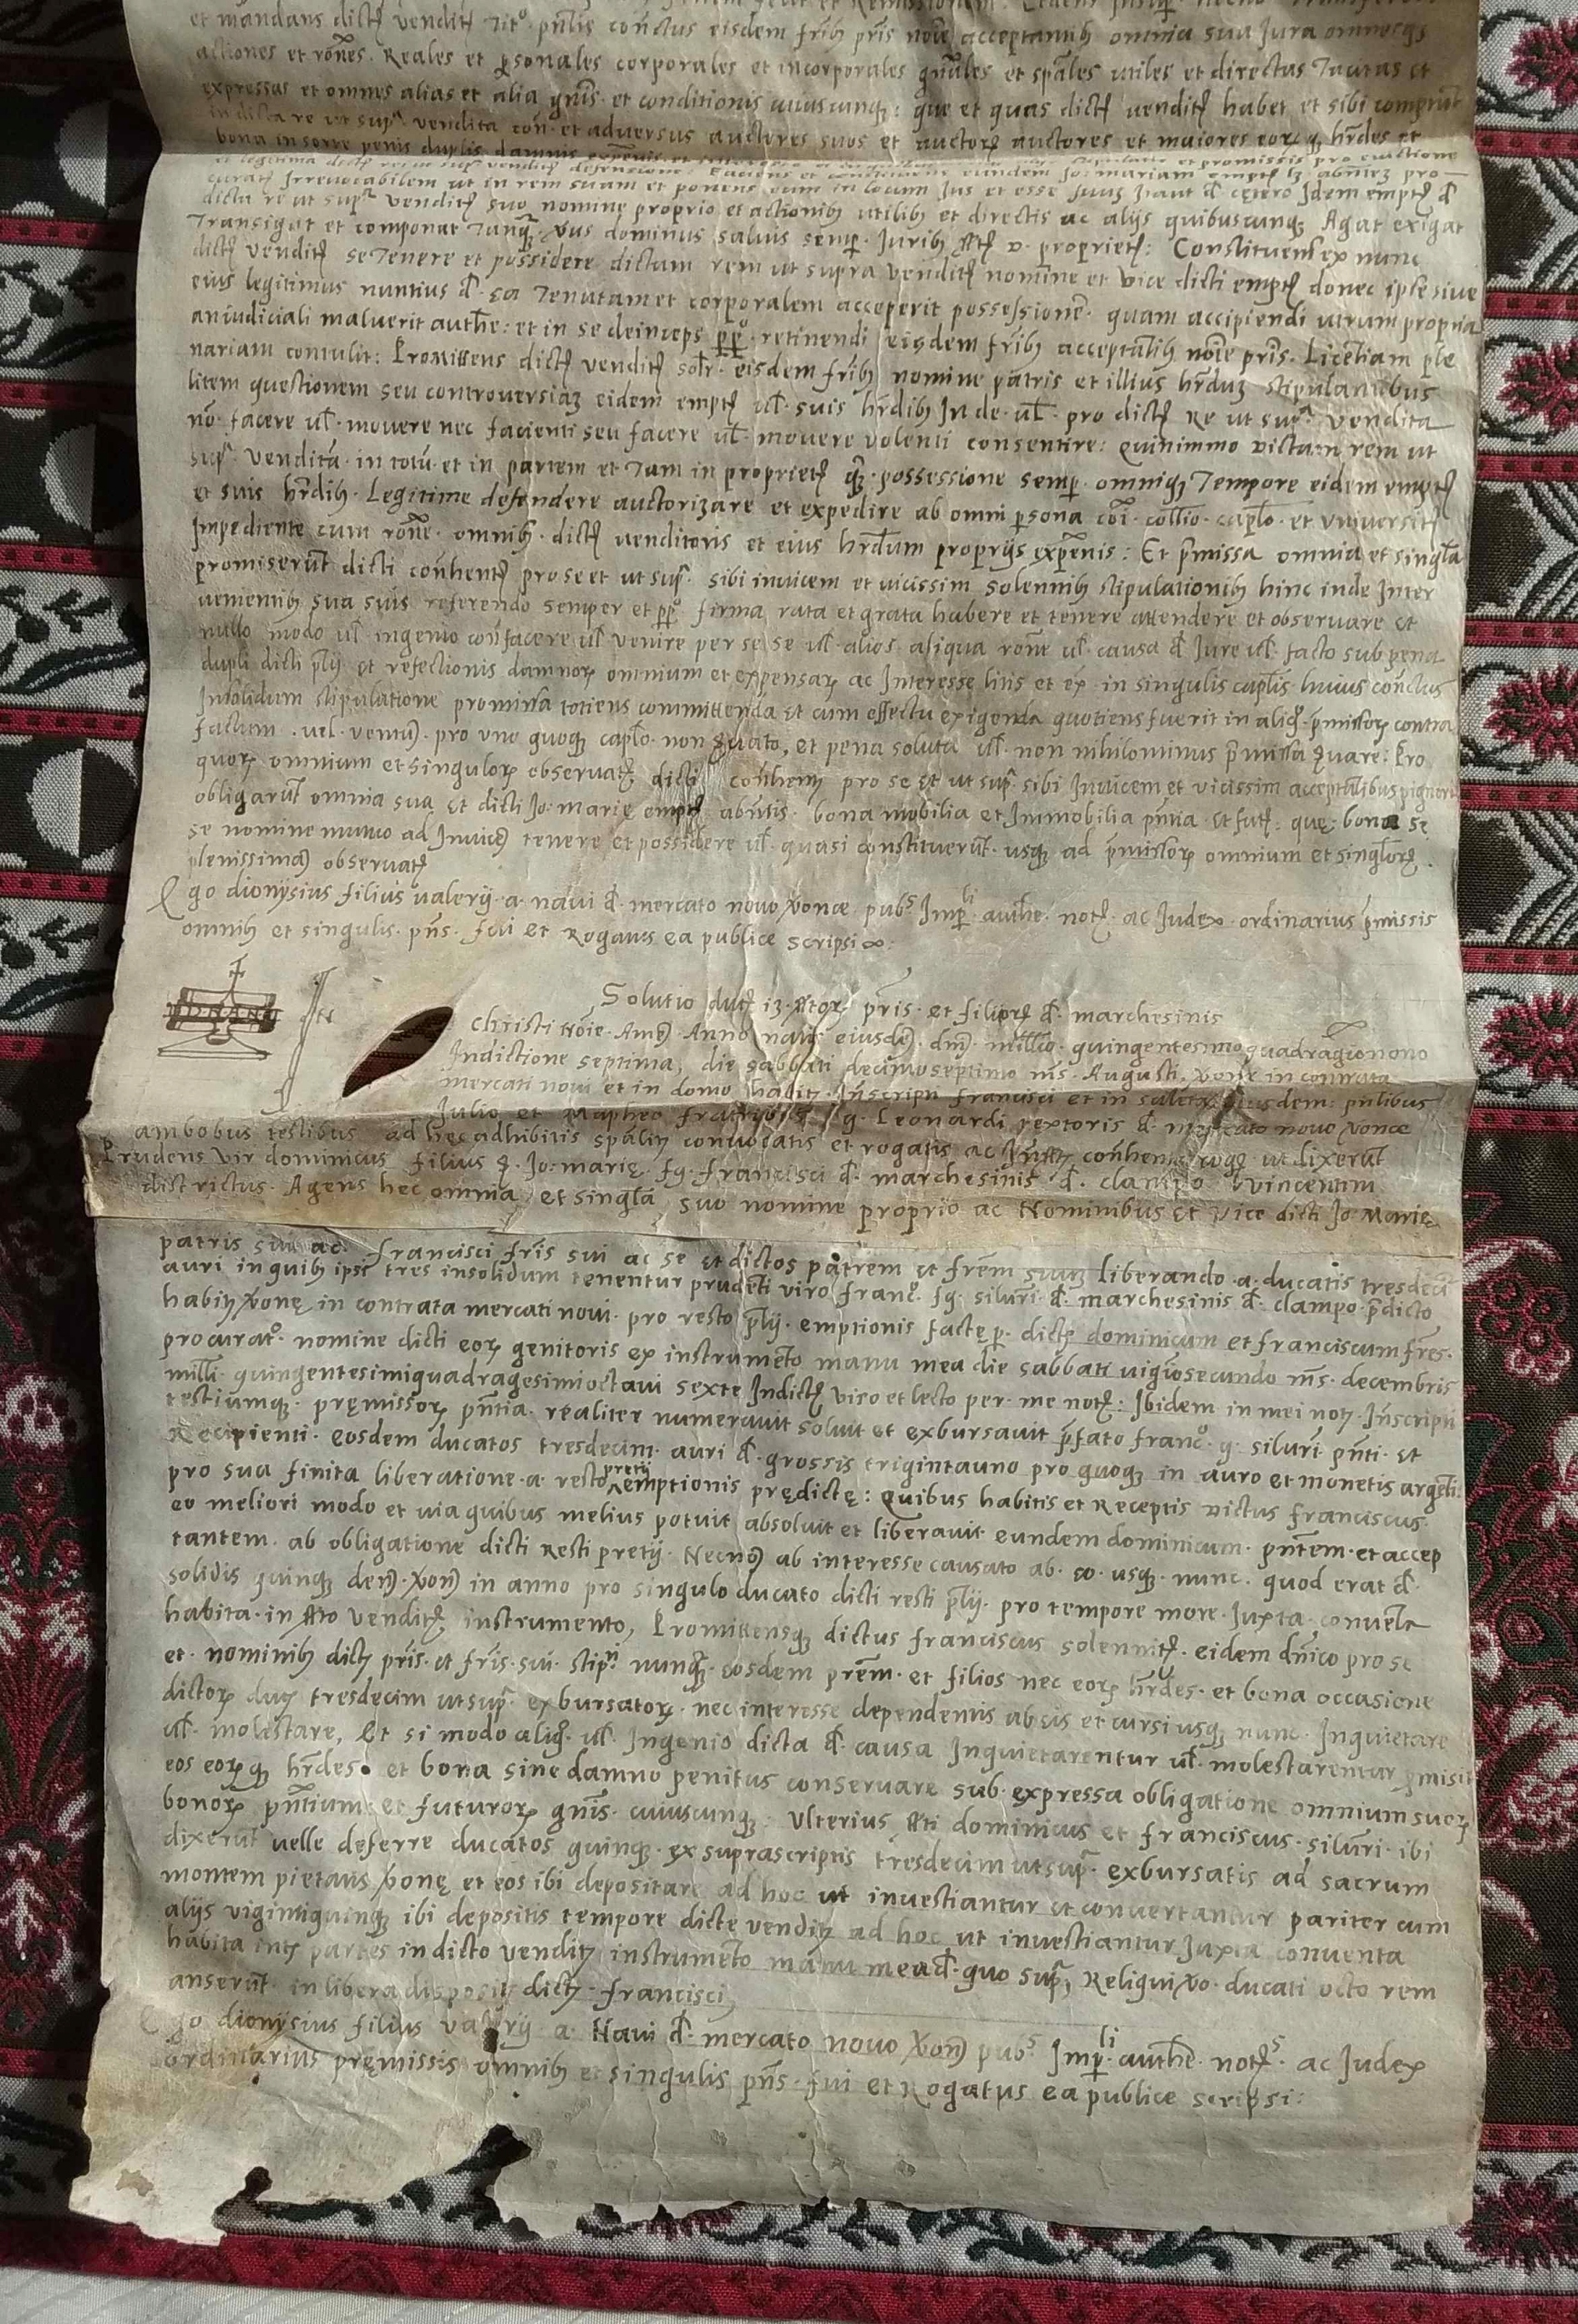 et mandans dictꝫ venditꝫ tito. pn̄tis con̄ctus eisdem frīb pr̄is noīe acceptantib omnia sua Jura omnesqꝫ
actiones et rōnes. Reales et ꝑsonales corporales et incorporales gn̄ales et spāles utiles et directas Tacitas et
expressas et omnes alias et alia gn̄is. et conditionis cuiuscunqꝫ: que et quas dictꝫ venditꝫ habet et sibi competūt
in dicta re ut supᵃ vendita con̄. et adversus auctores suos et auctorꝫ auctores et maiores eorꝫ qꝫ hr̄des et
bona in sorte penis duplis damnis
et promissis pro evictione
et legitima eundem Jo: mariam emptꝫ lꝫ abn̄tez pro-
curatꝫ Irrevocabilem ut in rem suam et ponens eum in locum Jus et esse suuꝫ Itaut đ cętero Idem emptꝫ đ
dicta re ut supᵃ venditꝫ suo nomine proprio et actionib utilib et directis ac alijs quibuscunqꝫ Agat exigat
Transigat et componat Tanqꝫ. v̄us dominus saluis semꝑ. Juribꝫ Proprietꝫ: Constituens ex nunc
dictꝫ venditꝫ se Tenere et possidere dictam rem ut supra venditꝫ nomine et vice dicti emptꝫ donec ipse sive
eius legitimus nuntius đ. ea Tenutam et corporalem acceperit possessionē. quam accipiendi utrum propria
aniudiciali maluerit auth̄e: et in se deinceps ꝑꝑº. retinendi eisdem frīb acceptn̄tib noīe pr̄is. Licentiam ple
nariam contulit: Promittens dictꝫ venditꝫ solr̄. eisdem frīb nomine patris et illius hr̄duꝫ stipulantibus
litem questionem seu controversiaꝫ eidem emptꝫ ul̄. suis hr̄dib Inde. ul̄. pro dictꝫ Re ut supᵃ. vendita
no facere ul̄. movere nec facienti seu facere ul̄. movere volenti consentire: Quinimmo dictam rem ut
supᵃ. vendita. in totū. et in partem et Tam in proprietꝫ qꝫ. possessione semꝑ. omniqꝫ Tempore eidem emptꝫ
et suis hr̄dib. Legitime defendere auctorizare et expedire ab omni ꝑsona cōi. collīo. capl̄o. et universitꝫ
Impediente cum rōne. omnib. dictꝫ venditoris et eius hr̄dum proprijs expēnis: Et p̄missa omnia et singl̄a
promiserūt dicti con̄hentꝫ pro se et ut supᵃ. sibi invicem et vicissim solennib stipulationib hinc inde Inter
venientib sua suis referendo semper et ꝑꝑº firma rata et grata habere et tenere attendere et observare et
nullo modo ul̄. ingenio con̄facere ul̄ venire per se se ul̄. alios. aliqua rōne ul̄. causa đ Jure ul̄. facto sub pena
dupli dicti pl̄ij et refectionis damnorꝫ omnium et expensarꝫ ac Interesse litis et ex̄. in singulis capl̄is huius con̄ctus
Insolidum stipulatione promissa totiens committenda et cum effectu exigenda quotiens fuerit in aliqᵒ. p̄missorꝫ contra
factum. vel. ventū. pro uno quoqꝫ capl̄o. non servato. et pena soluta ul̄. non nihilominus p̄missa servare: Pro
quorꝫ omnium et singulorꝫ observatꝫ dicti con̄hentꝫ pro se et ut supᵃ sibi Invicem et vicissim acceptantibus pignori
obligarūt omnia sua et dicti Jo: marię emptꝫ abn̄tis. bona mobilia et Immobilia pn̄tia. et futꝫ: quę bona se
se nomine mutuo ad Invicē tenere et possidere ul̄. quasi constituerūt. usqꝫ ad p̄missorꝫ omnium et singl̄orꝫ
plenissimā observatꝫ
Ego dionysius filius valerij. a. navi đ. mercato novo v̄onae. pubˢ. Imꝑˡⁱ. auth̄e. notꝫ. ac Judex ordinarius p̄missis
omnib et singulis. pn̄s. fui et Rogatus ea publice scripsi:
DNAN
N
Solutio ducꝫ 13. pr̄is. et filiorꝫ đ. marchesinis
Christi Nōie. Amē. Anno nativꝫ eiusdē. dn̄i. mill̄io. quingentesimoquadrag̃ionono
Indictione septima, die sabbati decimoseptimo m̄s. Augusti. v̄onę in contrata
mercati novi et in domo habitꝫ. In̄scripti francisci et in saleta eiusdem: pn̄tibus
Julio et Mapheo fratribꝫ fꝫ q. Leonardi textoris đ. mercato novo v̄onae
ambobus testibus ad hec adhibitis spāliter convocatis et rogatis ac con̄hentꝫ cogꝫ ut dixerūt
Prudens vir dominicus filius đ. Jo: marię. fꝫ. francisci đ. marchesinis đ. clampo vincentini
districtus. Agens hec omnia et singl̄a suo nomine proprio ac Nominibus et vice dicti Jo. Marię
patris sui ac. francisci fr̄is sui ac se et dictos patrem et frēm suuꝫ liberando. a. ducatis tresdeci
auri in quib ipsi tres insolidum tenentur prudenti viro francᵒ. fꝫ. silurī. đ. marchesinis đ. clampo p̄dicto
habitꝫ v̄onę in contrata mercati novi. pro resto pl̄ij. emptionis factę ꝑ. dictꝫ dominicum et franciscum frēs.
procuratᵒ. nomine dicti eorꝫ genitoris ex instrumēto manu mea die sabbati vigiōsecundo m̄s. decembris
mill̄i quingentesimiquadragesimioctavi sextę Indictꝫ viso et lecto per me notꝫ: Ibidem in mei notꝫ. In̄scripti
testiumqꝫ. pręmissorꝫ pn̄tia. realiter numeravit solvit et exbursavit p̄fato francᵒ. q. silurī pn̄ti. et
Recipienti. eosdem ducatos tresdecim. auri đ. grossis trigintauno pro quoqꝫ in auro et monetis argēti:
pro sua finita liberatione. a. resto pretij emptionis prędictę: Quibus habitis et Receptis dictus franciscus
eo meliori modo et via quibus melius potuit absolvit et liberavit eundem dominicum. pn̄tem. et accep
tantem. ab obligatione dicti Resti pretij. Necnō ab interesse causato ab. eo. usqꝫ. nunc. quod erat đ.
solidis quinqꝫ denꝫ. v̄onꝫ in anno pro singulo ducato dicti resti pl̄ij. pro tempore more. Juxta conventa
habita. in venditꝫ instrumento, Promittensqꝫ dictus franciscus solennitꝫ. eidem dn̄ico pro se
et. nominib dictꝫ pr̄is. et fr̄is. sui. stipᵗⁱ. nunqꝫ. eosdem prēm. et filios nec eorꝫ hr̄des. et bona occasione
dictorꝫ ducꝫ tresdecim ut supᵃ. exbursatorꝫ. nec interesse dependentis ab eis et cursi usqꝫ nunc. Inquietare
ul̄. molestare, Et si modo aliqᵒ. ul̄. Ingenio dicta đ. causa Inquietarentur ul̄. molestarentur p̄misit
eos eorꝫqꝫ hr̄des. et bona sine damno penitus conservare sub. expressa obligatione omnium suorꝫ
bonorꝫ pn̄tium et futurorꝫ gn̄is. cuiuscunqꝫ. Ulterius dominicus et franciscus. silurī. ibi
dixerūt velle deferre ducatos quinqꝫ. ex suprascriptis tresdecim ut supᵃ. exbursatis ad sacrum
montem pietatis v̄onę et eos ibi depositare ad hoc ut investiantur et convertantur pariter cum
alijs vigintiquinqꝫ ibi depositis tempore dictę venditꝫ ad hoc ut investiantur Juxta conventa
habita intꝫ partes in dicto venditꝫ instrumēto manu mea đ. quo supᵃ, Reliqui v̄o. ducati octo rem
anserūt. in libera disposit̄ꝫ dictꝫ. francisci
Ego dionysius filius valerij. a. Navi đ. mercato novo v̄onꝫ pubˢ. Imꝑˡⁱ. auth̄e. notꝫˢ. ac Judex
ordinarius pręmissis omnib et singulis pn̄s. fui et Rogatus ea publice scripsi: